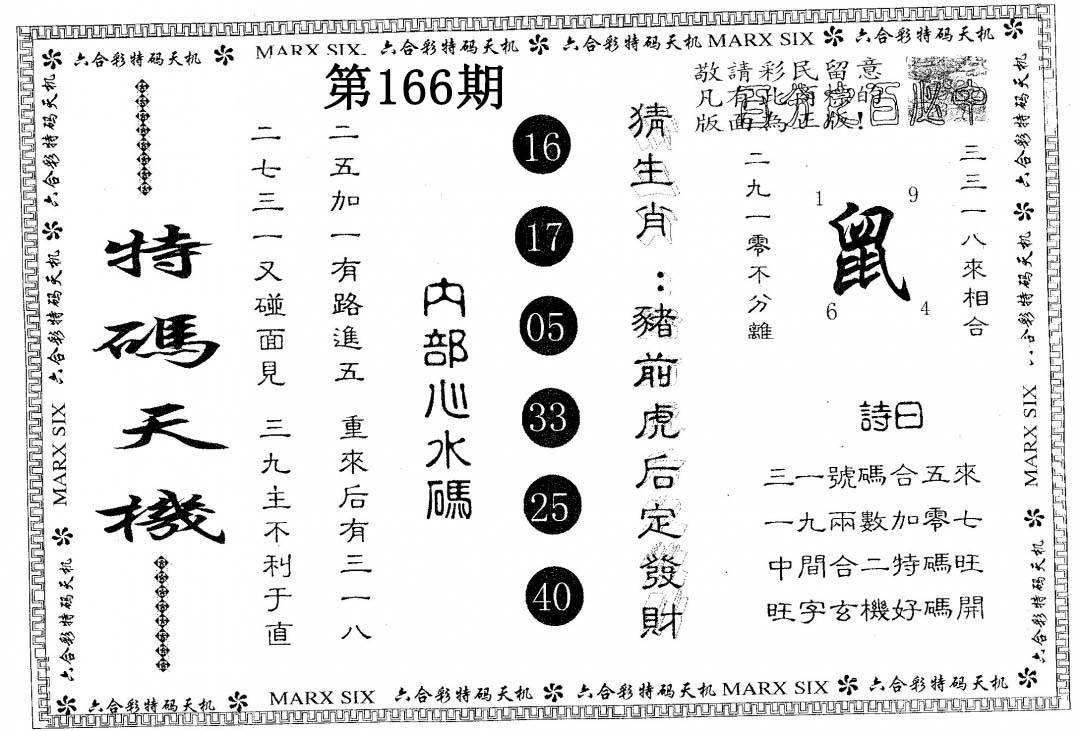 六合彩特码天机 MARX SIX 六合彩特码天机 六合彩特码天机 MARX SIX 六合彩特码天机
第166期
敬請彩民留意
版面為正版!
三三一八來相合
二九一零不分離
1
9
鼠
6
4
詩曰
三一號碼合五來
一九兩數加零七
中間合二特碼旺
旺字玄機好碼開
猜生肖：豬前虎后定發財
16
17
05
33
25
40
内部心水碼
二五加一有路進五
重來后有三一八
二七三一又碰面見
三九主不利于直
特碼天機
六合彩特码天机 六合彩特码天机 MARX SIX 六合彩特码天机
六合彩特码天机 六合彩特码天机 MARX SIX 六合彩特码天机
六合彩特码天机 MARX SIX 六合彩特码天机 六合彩特码天机 MARX SIX 六合彩特码天机